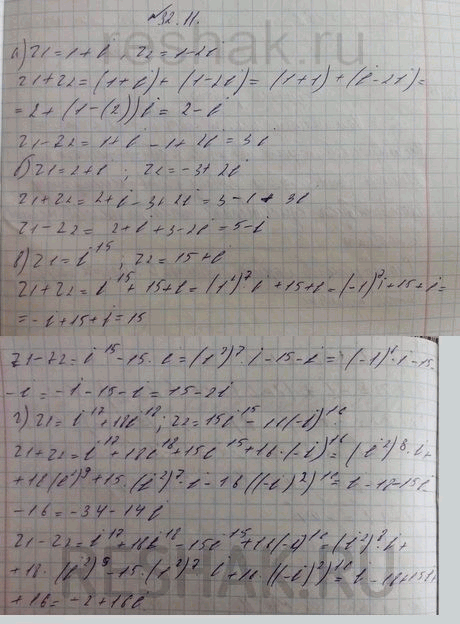 №32.11.
reshak.ru
а) z1=1+i, z2=1-2i
z1+z2=(1+i)+(1-2i)=(1+1)+(i-2i)=
=2+(1-(2))i=2-i
z1-z2=1+i-1+2i=3i
б) z1=2+i ; z2=-3+2i
z1+z2=2+i-3+2i=3-1+3i
z1-z2=2+i+3-2i=5-i
в) z1=i^15 ; z2=15+i
z1+z2=i^15+15+i=(i^2)^7·i+15+i=(-1)^7i+15+i=
=-i+15+i=15
z1-z2=i^15-15·i=(i^2)^7·i-15-i=(-1)^7·i-15-
-i=-i-15-i=15-2i
г) z1=i^17+18i^18; z2=15i^15-16(-i)^16
z1+z2=i^17+18i^18+15i^15+16·(-i)^16=(i^2)^8·i+
+18(i^2)^9+15·(i^2)^7·i-16((-i)^2)^10=i-18-15i
-16=-34-14i
z1-z2=i^17+18i^18-15i^15+16(-i)^16=(i^2)^8·i+
+18·(i^2)^9-15·(i^2)^7 i+16·((-i)^2)^10=i-18+15i
+16=-2+16i
RESHAK.RU